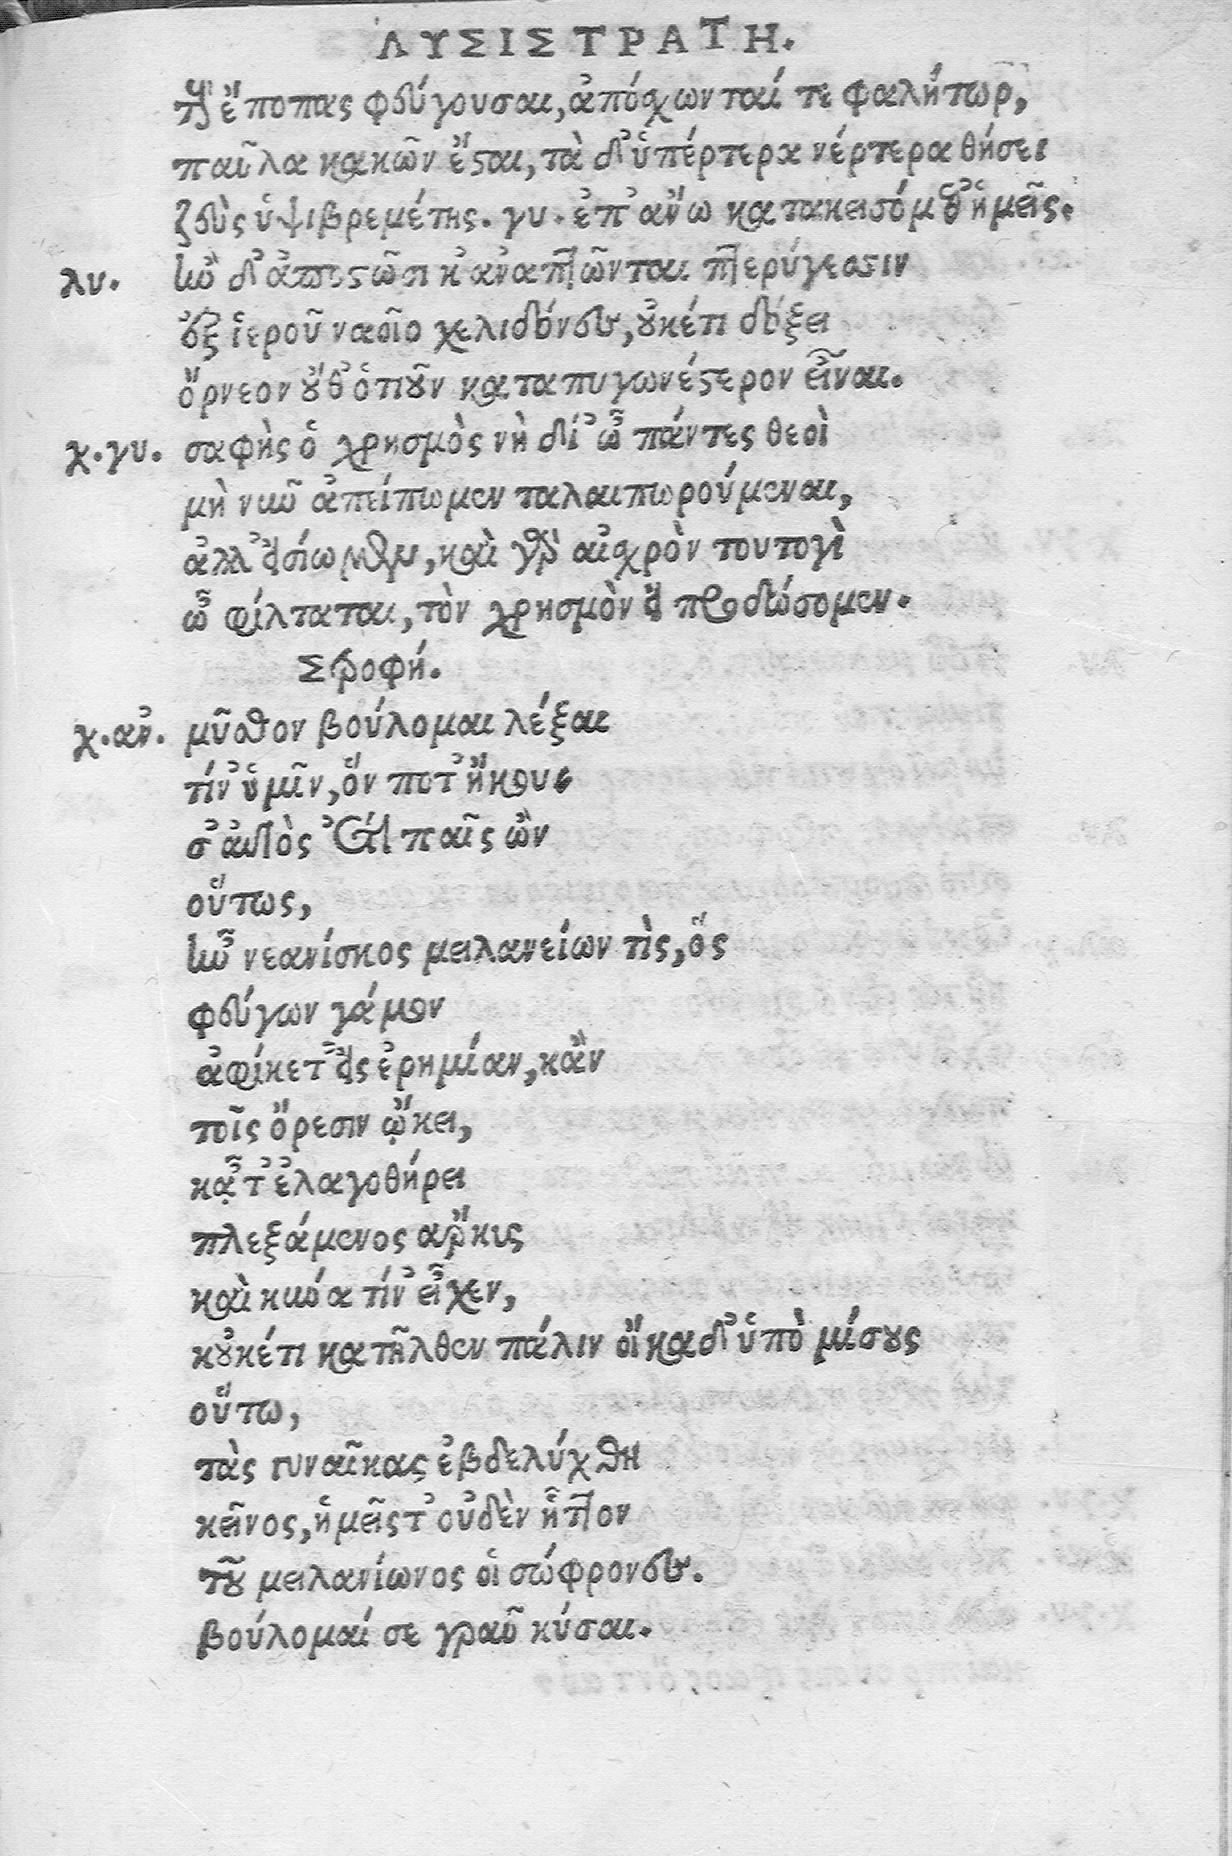 ΛΥΣΙΣΤΡΑΤΗ.
τοὺς ἔποπας φεύγουσαι, ἀπόσχωνταί τε φαλήτωρ,
παῦλα κακῶν ἔσται, τὰ δ' ὑπέρτερα νέρτερα θήσει
ζεὺς ὑψιβρεμέτης. γυ. ἐπάνω κατακεισόμεθ' ἡμεῖς.
λυ. ἢν δ' ἀποστῶσι κ' ἀναπτῶνται πτερύγεσσιν
ἐξ ἱεροῦ ναοῖο χελιδόνες, οὐκέτι δόξει
ὄρνεον οὐδ' ὁτιοῦν καταπυγωνέστερον εἶναι.
χ.γυ. σαφὴς ὁ χρησμὸς νὴ δί' ὦ πάντες θεοὶ
μὴ νῦν ἀπείπωμεν ταλαιπωρούμεναι,
ἀλλ' εἰσίωμεν, καὶ γὰρ αἰσχρὸν τουτογὶ
ὦ φίλταται, τὸν χρησμὸν εἰ προδώσομεν.
Στροφή.
χ.αν. μῦθον βούλομαι λέξαι
τίν' ὑμῖν, ὅν ποτ' ἤκουσ
σ' αὐτὸς ἔτι παῖς ὢν
οὕτως,
ἦν νεανίσκος μειλανείων τὶς, ὃς
φεύγων γάμον
ἀφίκετ' ἐς ἐρημίαν, κἂν
τοῖς ὄρεσιν ᾤκει,
κᾆτ' ἐλαγοθήρει
πλεξάμενος ἄρκυς
καὶ κύνα τίν' εἶχεν,
κοὐκέτι κατῆλθεν πάλιν οἴκαδ' ὑπὸ μίσους
οὕτω,
τὰς γυναῖκας ἐβδελύχθη
κεῖνος, ἡμεῖς τ' οὐδὲν ἧττον
τοῦ μειλανίωνος οἱ σώφρονες.
βούλομαί σε γραῦ κύσαι.